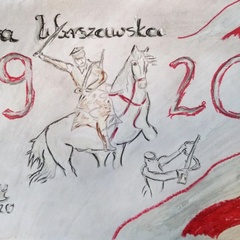 a Warszawska
9 20
20